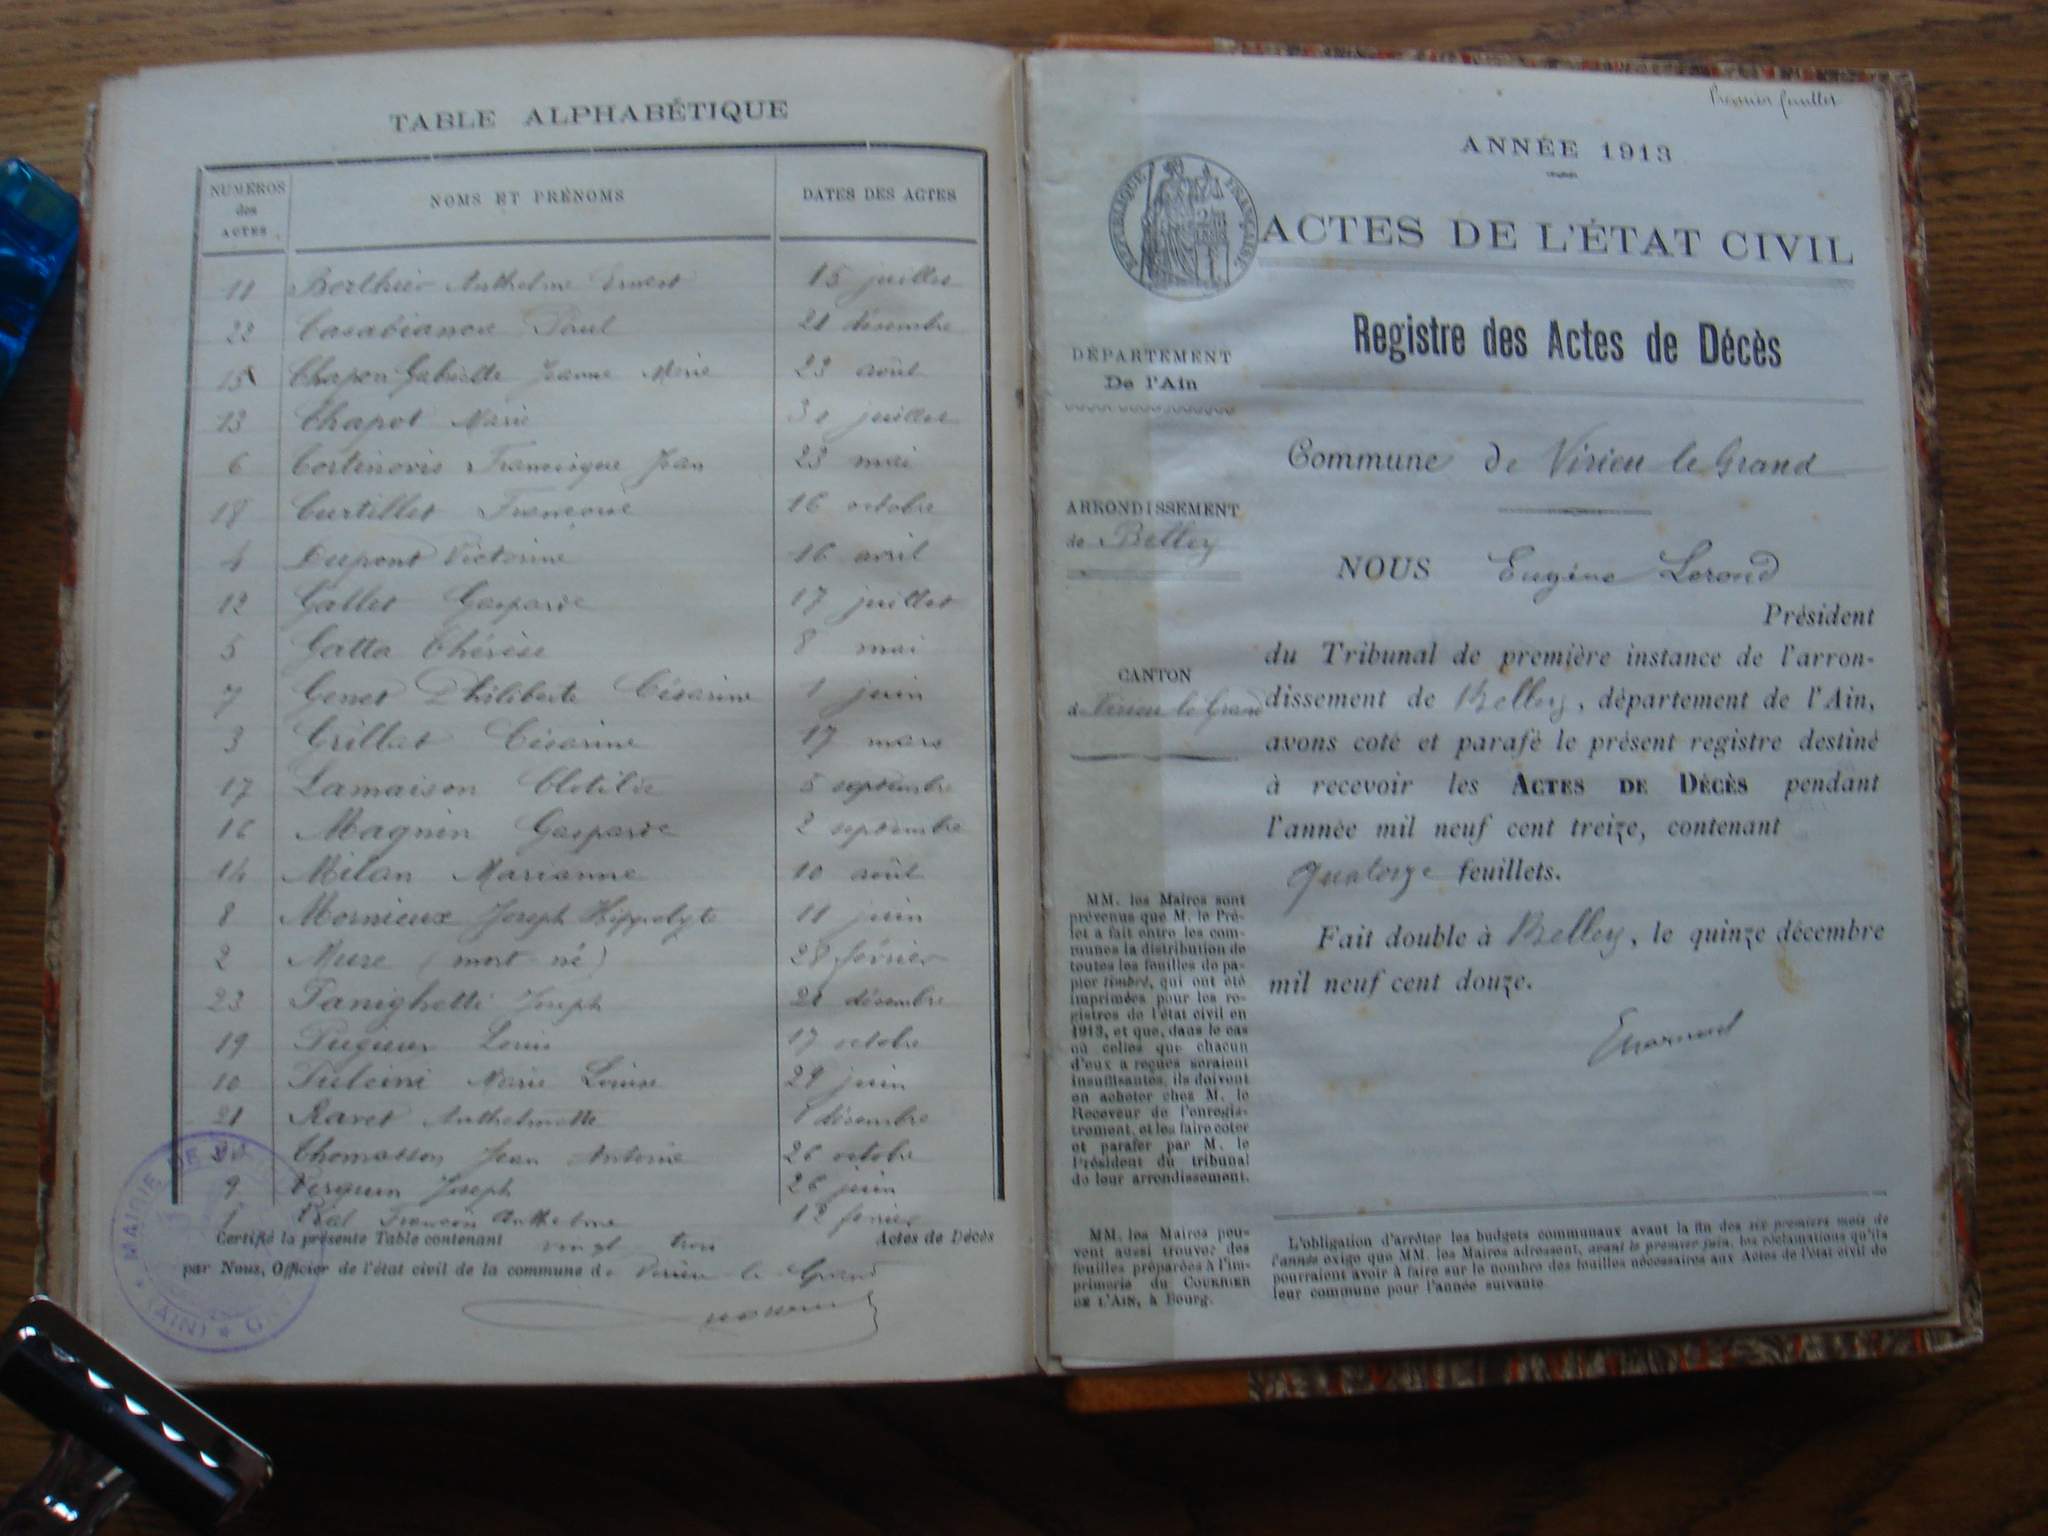 TABLE ALPHABÉTIQUE
NUMÉROS des ACTES NOMS ET PRÉNOMS DATES DES ACTES
11 Berthier Anthelme Ernest 15 juillet
22 Casabianca Paul 21 décembre
15 Chapon Gabrielle Jeanne Marie 23 août
13 Chapot Marie 31 juillet
6 Cortinovis Francisque Jean 23 mai
18 Curtillet Françoise 16 octobre
4 Dupont Victorine 16 avril
12 Gallet Gasparde 17 juillet
5 Gatta Thérèse 8 mai
7 Genet Philiberte Césarine 1 juin
3 Grillat Césarine 17 mars
17 Lamaison Clotilde 5 septembre
16 Magnin Gasparde 2 septembre
14 Milan Marianne 10 août
8 Mornieux Joseph Hippolyte 11 juin
2 Mure (mort né) 28 février
23 Panighetti Joseph 21 décembre
19 Louis 17 octobre
10 Marie Louise 29 juin
21 Ravet Anthelmette 1 décembre
Thomasson Jean Antoine 26 octobre
9 Verguin Joseph 26 juin
1 Vial François Anthelme 12 février
Certifié la présente Table contenant vingt trois Actes de Décès
par Nous, Officier de l'état civil de la commune de Virieu-le-Grand
MAIRIE DE (AIN)
Premier feuillet
ANNÉE 1913
RÉPUBLIQUE FRANÇAISE
ACTES DE L'ÉTAT CIVIL
Registre des Actes de Décès
DÉPARTEMENT
De l'Ain
ARRONDISSEMENT
de Belley
CANTON
de Virieu le Grand
MM. les Maires sont
prévenus que M. le Pré-
fet a fait entre les com-
munes la distribution de
toutes les feuilles de pa-
pier timbré, qui ont été
imprimées pour les re-
gistres de l'état civil en
1913, et que, dans le cas
où celles que chacun
d'eux a reçues seraient
insuffisantes, ils doivent
en acheter chez M. le
Receveur de l'enregis-
trement, et les faire coter
et parafer par M. le
Président du tribunal
de leur arrondissement.
MM. les Maires peu-
vent aussi trouver des
feuilles préparées à l'im-
primerie du COURRIER
DE L'AIN, à Bourg.
Commune de Virieu le Grand
NOUS Eugène Lerond
Président
du Tribunal de première instance de l'arron-
dissement de Belley, département de l'Ain,
avons coté et parafé le présent registre destiné
à recevoir les ACTES DE DÉCÈS pendant
l'année mil neuf cent treize, contenant
quatorze feuillets.
Fait double à Belley, le quinze décembre
mil neuf cent douze.
L'obligation d'arrêter les budgets communaux avant la fin des six premiers mois de
l'année exige que MM. les Maires adressent, avant le premier juin, les réclamations qu'ils
pourraient avoir à faire sur le nombre des feuilles nécessaires aux Actes de l'état civil de
leur commune pour l'année suivante.